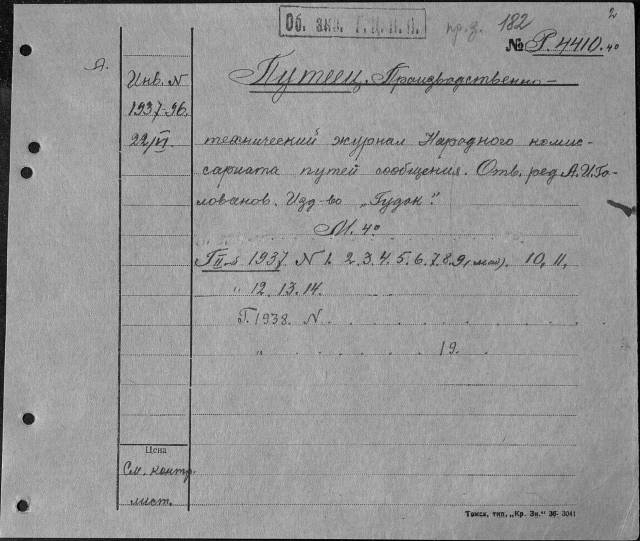 Об. экз. Г.Ц.Н.П.
пр. д. 182
2
№ Р. 4410. 4°
Я.
Инв. N
1937-96.
22/VI
Путеец. Производственно-
технический журнал Народного комис-
сариата путей сообщения. Отв. ред. А.И. Го-
лованов. Изд-во „Гудок".
М. 4°
1937 N 1. 2. 3. 4. 5. 6. 7. 8. 9 (май). 10, 11,
" 12. 13. 14.
Г. 1938. N . . . . . . . . .
" . . . . . . . 19. .
Цена
См. контр.
лист.
Томск, тип. „Кр. Зн." 36- 3041